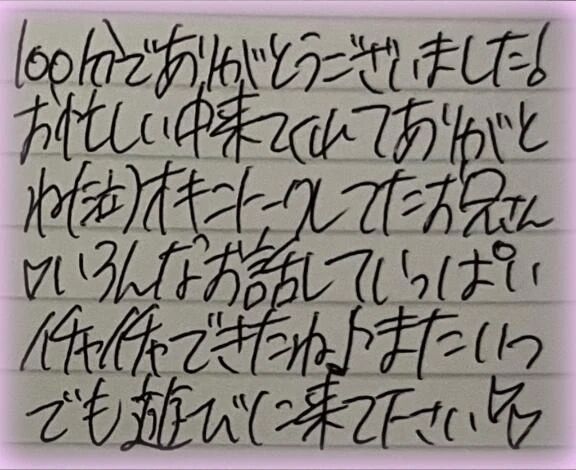 100分でありがとうございました!
お忙しい中来てくれてありがと
ね(泣)オキニトークしてたお兄さん
♡いろんなお話していっぱい
イチャイチャできたね♪またいつ
でも遊びに来て下さい♡♡